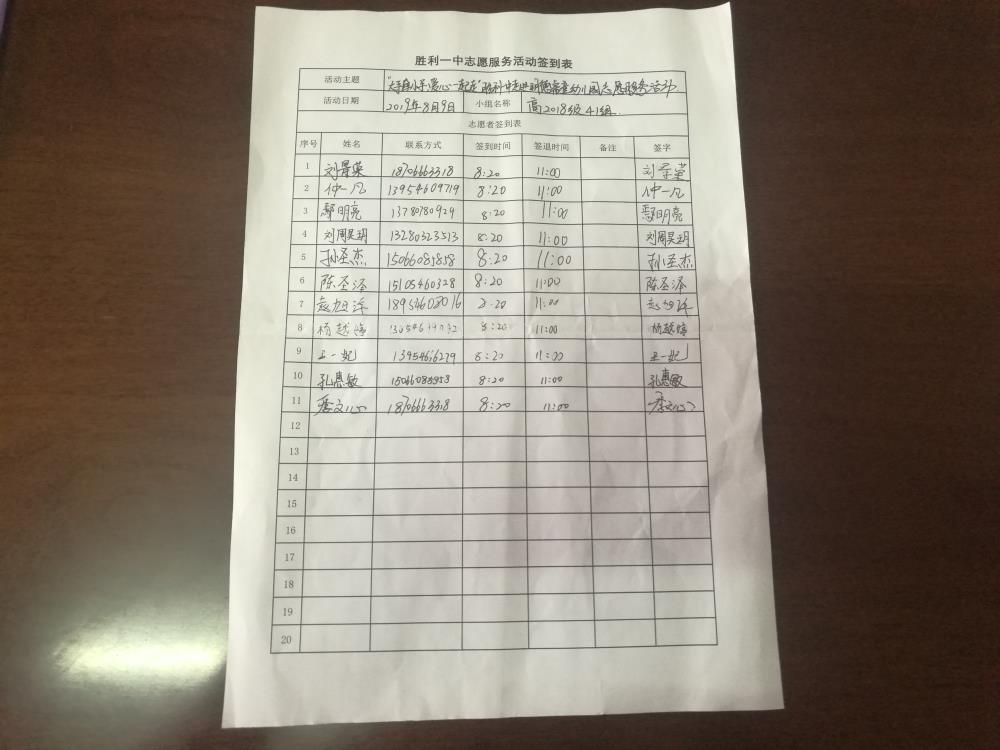 胜利一中志愿服务活动签到表
活动主题 "大手牵小手,爱心一起走"胜利一中走进明德 幼儿园志愿服务活动
活动日期 2019年8月9日 小组名称 高2018级41组
志愿者签到表
序号 姓名 联系方式 签到时间 签退时间 备注 签字
1 刘景 18706663318 8:20 11:00 刘景
2 仲一凡 13954609719 8:20 11:00 仲一凡
3 鄢明亮 13780780929 8:20 11:00 鄢明亮
4 刘周昊玥 13280323513 8:20 11:00 刘周昊玥
5 孙圣杰 15066085858 8:20 11:00 孙圣杰
6 陈圣泽 15105460328 8:20 11:00 陈圣泽
7 旭 8:20 11:00 旭
8 杨越婷 8:20 11:00 杨越婷
9 王一妃 13954666279 8:20 11:00 王一妃
10 孔惠敏 15066085858 8:20 11:00 孔惠敏
11 季文心 18706663318 8:20 11:00 季文心
12
13
14
15
16
17
18
19
20